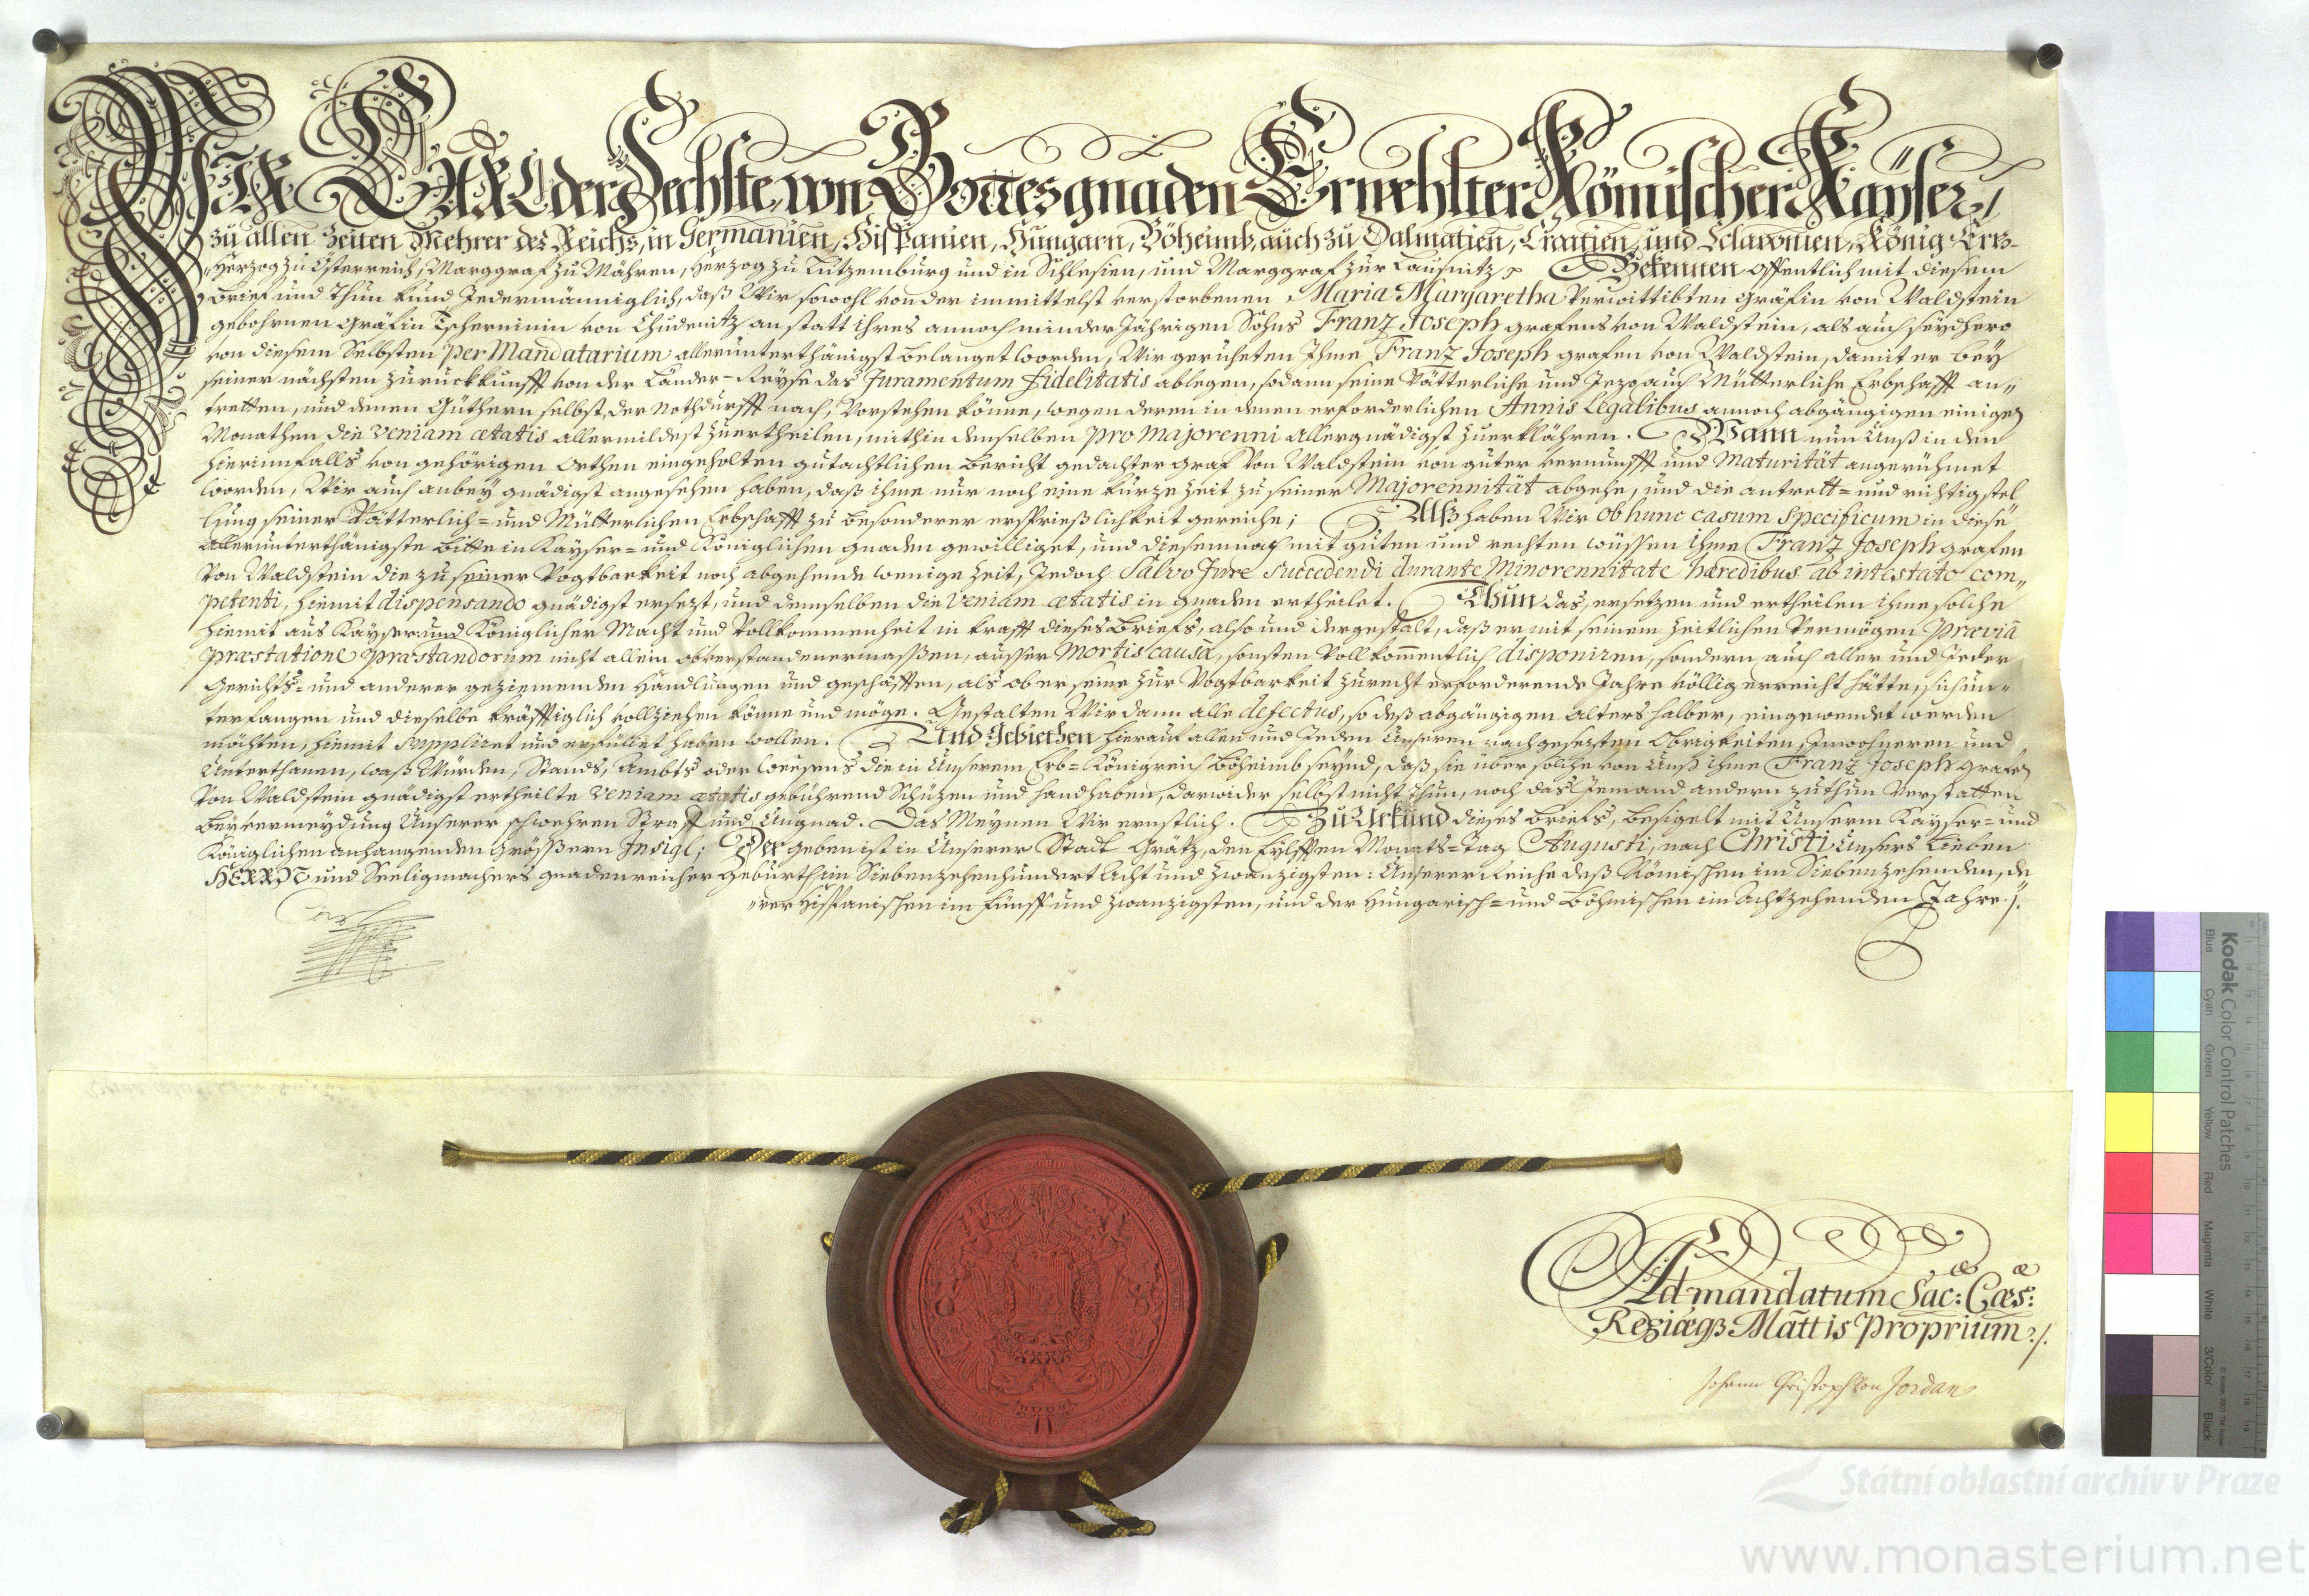 WIR CARL der Sechste, von Gottes gnaden Erwehlter Römischer Kayser,
zu allen Zeiten Mehrer des Reichs, in Germanien, Hispanien, Hungarn, Böheimb, auch zu Dalmatien, Croatien, und Sclavonien, König, Ertz-
„Hertzog zu Österreich, Marggraf zu Mähren, Hertzog zu Lützemburg und in Schlesien, und Marggraf zur Lausnitz Bekennen offentlich mit diesem
Brief und Thun kund Jedermänniglich, daß Wir sowohl von der immittelst verstorbenen Maria Margaretha Verwittibten Gräfin von Waldstein
gebohrnen Gräfin Tscherninin von Chudenitz anstatt ihres annoch minder Jährigen Sohns Franz Joseph grafens von Waldstein, als auch seydhero
von diesem Selbsten per Mandatarium allerunterthänigst belanget worden, Wir geruheten Ihme Franz Joseph grafen von Waldstein, damit er bey
seiner nächsten zuruckkunfft von der Länder-Reyse das Juramentum fidelitatis ablegen, sodann seine Vätterliche und Jezo auch Mütterliche Erbschafft an„
tretten, und denen Güthern selbst, der Nothdurfft nach, Vorstehen könne, wegen deren in denen erforderlichen Annis Legalibus annoch abgängigen einigen
Monathen die veniam ætatis allermildest zuertheilen, mithin denselben pro majorenni allergnädigst zuerklähren. Wann nun Unß in den
hierinnfalls von gehörigen Orthen eingeholten gutachtlichen Bericht gedachter Graf von Waldstein von guter vernunfft und Maturität angerühmet
worden, Wir auch anbey gnädigst angesehen haben, daß ihme nur noch eine kurze Zeit zu seiner Majorennität abgehe, und die antrett- und richtigstel
lung seiner Vätterlich- und Mütterlichen Erbschafft zu besonderer ersprießlichkeit gereiche; Alß haben Wir ob hunc casum specificum in diese
allerunterthänigste bitte in Kayser- und Königlichen gnaden gewilliget, und diesemnach mit guten und rechten wissen ihme Franz Joseph grafen
Von Waldstein die zu seiner Vogtbarkeit noch abgehende wenige Zeit, Jedoch Salvo Jure Succedendi durante Minorennitate hæredibus ab intestato com„
petenti, hiemit dispensando gnädigst ersezt, und demselben die Veniam ætatis in gnaden ertheilet. Thun das, ersetzen und ertheilen ihme solche
hiemit aus Kayser- und Königlicher Macht und Vollkommenheit in krafft dieses Briefs, also und dergestalt, daß er mit seinem Zeitlichen Vermögen præviâ
præstatione præstandorum nicht allein obverstandenermassen, ausser Mortis causâ, sonsten Vollkom̄entlich disponiren, sondern auch aller und Jeder
Gerichts- und anderer geziemenden Handlungen und geschäfften, als ob er seine zur Vogtbarkeit zurecht erforderende Jahre völlig erreicht hätte, sich un-
terfangen und dieselbe kräfftiglich vollziehen könne und möge. Gestalten Wir dann alle defectus, so deß abgängigen alters halber, eingewendet werden
möchten, hiemit suppliret und erfüllet haben wollen. Und Gebiethen hierauf allen und Jeden Unseren nachgesezten Obrigkeiten, Inwohneren und
Unterthanen, was Würden, Stands, Ambts oder Weesens die in Unserem Erb-Königreich Böheimb seynd, daß sie über solche von Unß ihme Franz Joseph Grafen
Von Waldstein gnädigst ertheilte Veniam ætatis gebührend Schüzen und handhaben, darwider selbst nicht thun, noch das Jemand andern zuthun Verstatten
Bey vermeydung Unserer schwehren Straff und Ungnad. Das Meynen Wir ernstlich. Zu Urkund dieses Briefs, besigelt mit Unserm Kayser- und
Königlichen anhangenden grössern Insigl; Der geben ist in Unserer Stadt Grätz, den Eylfften Monats-Tag Augusti, nach Christi Unsers Lieben
HERRN und Seeligmachers gnadenreicher Geburth im Siebenzehenhundert Acht und Zwanzigsten: Unserer Reiche deß Römischen im Siebenzehenden, de
„rer Hispanischen im Fünff und Zwanzigsten, und der Hungarisch- und Böhmischen im Achtzehenden Jahre./.
Carl
Ad mandatum Sac: Cæs:
æ æ
Regiæqз Mattis Proprium./.
Johann Christoph von Jordan
Kodak Color Control Patches
Blue Cyan Green Yellow Red Magenta White 3/Color Black
Státní oblastní archiv v Praze
www.monasterium.net